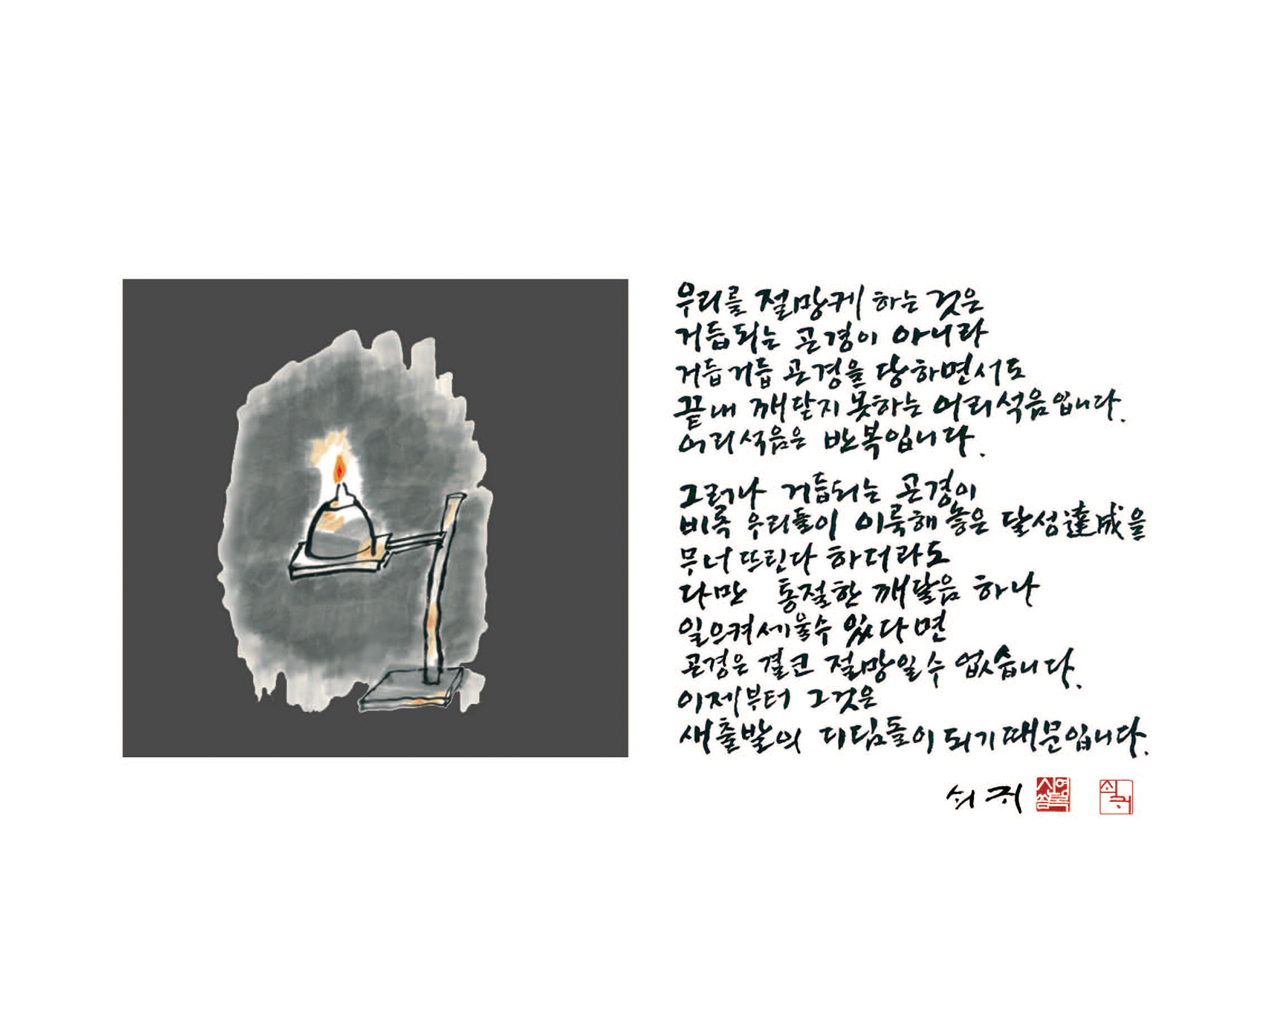 우리를 절망케 하는 것은
거듭되는 곤경이 아니라
거듭거듭 곤경을 당하면서도
끝내 깨닫지 못하는 어리석음입니다.
어리석음은 반복입니다.
그러나 거듭되는 곤경이
비록 우리들이 이룩해 놓은 달성達成을
무너뜨린다 하더라도
다만 통절한 깨달음 하나
일으켜세울수 있다면
곤경은 결코 절망일 수 없습니다.
이제부터 그것은
새출발의 디딤돌이 되기 때문입니다.
쇠귀